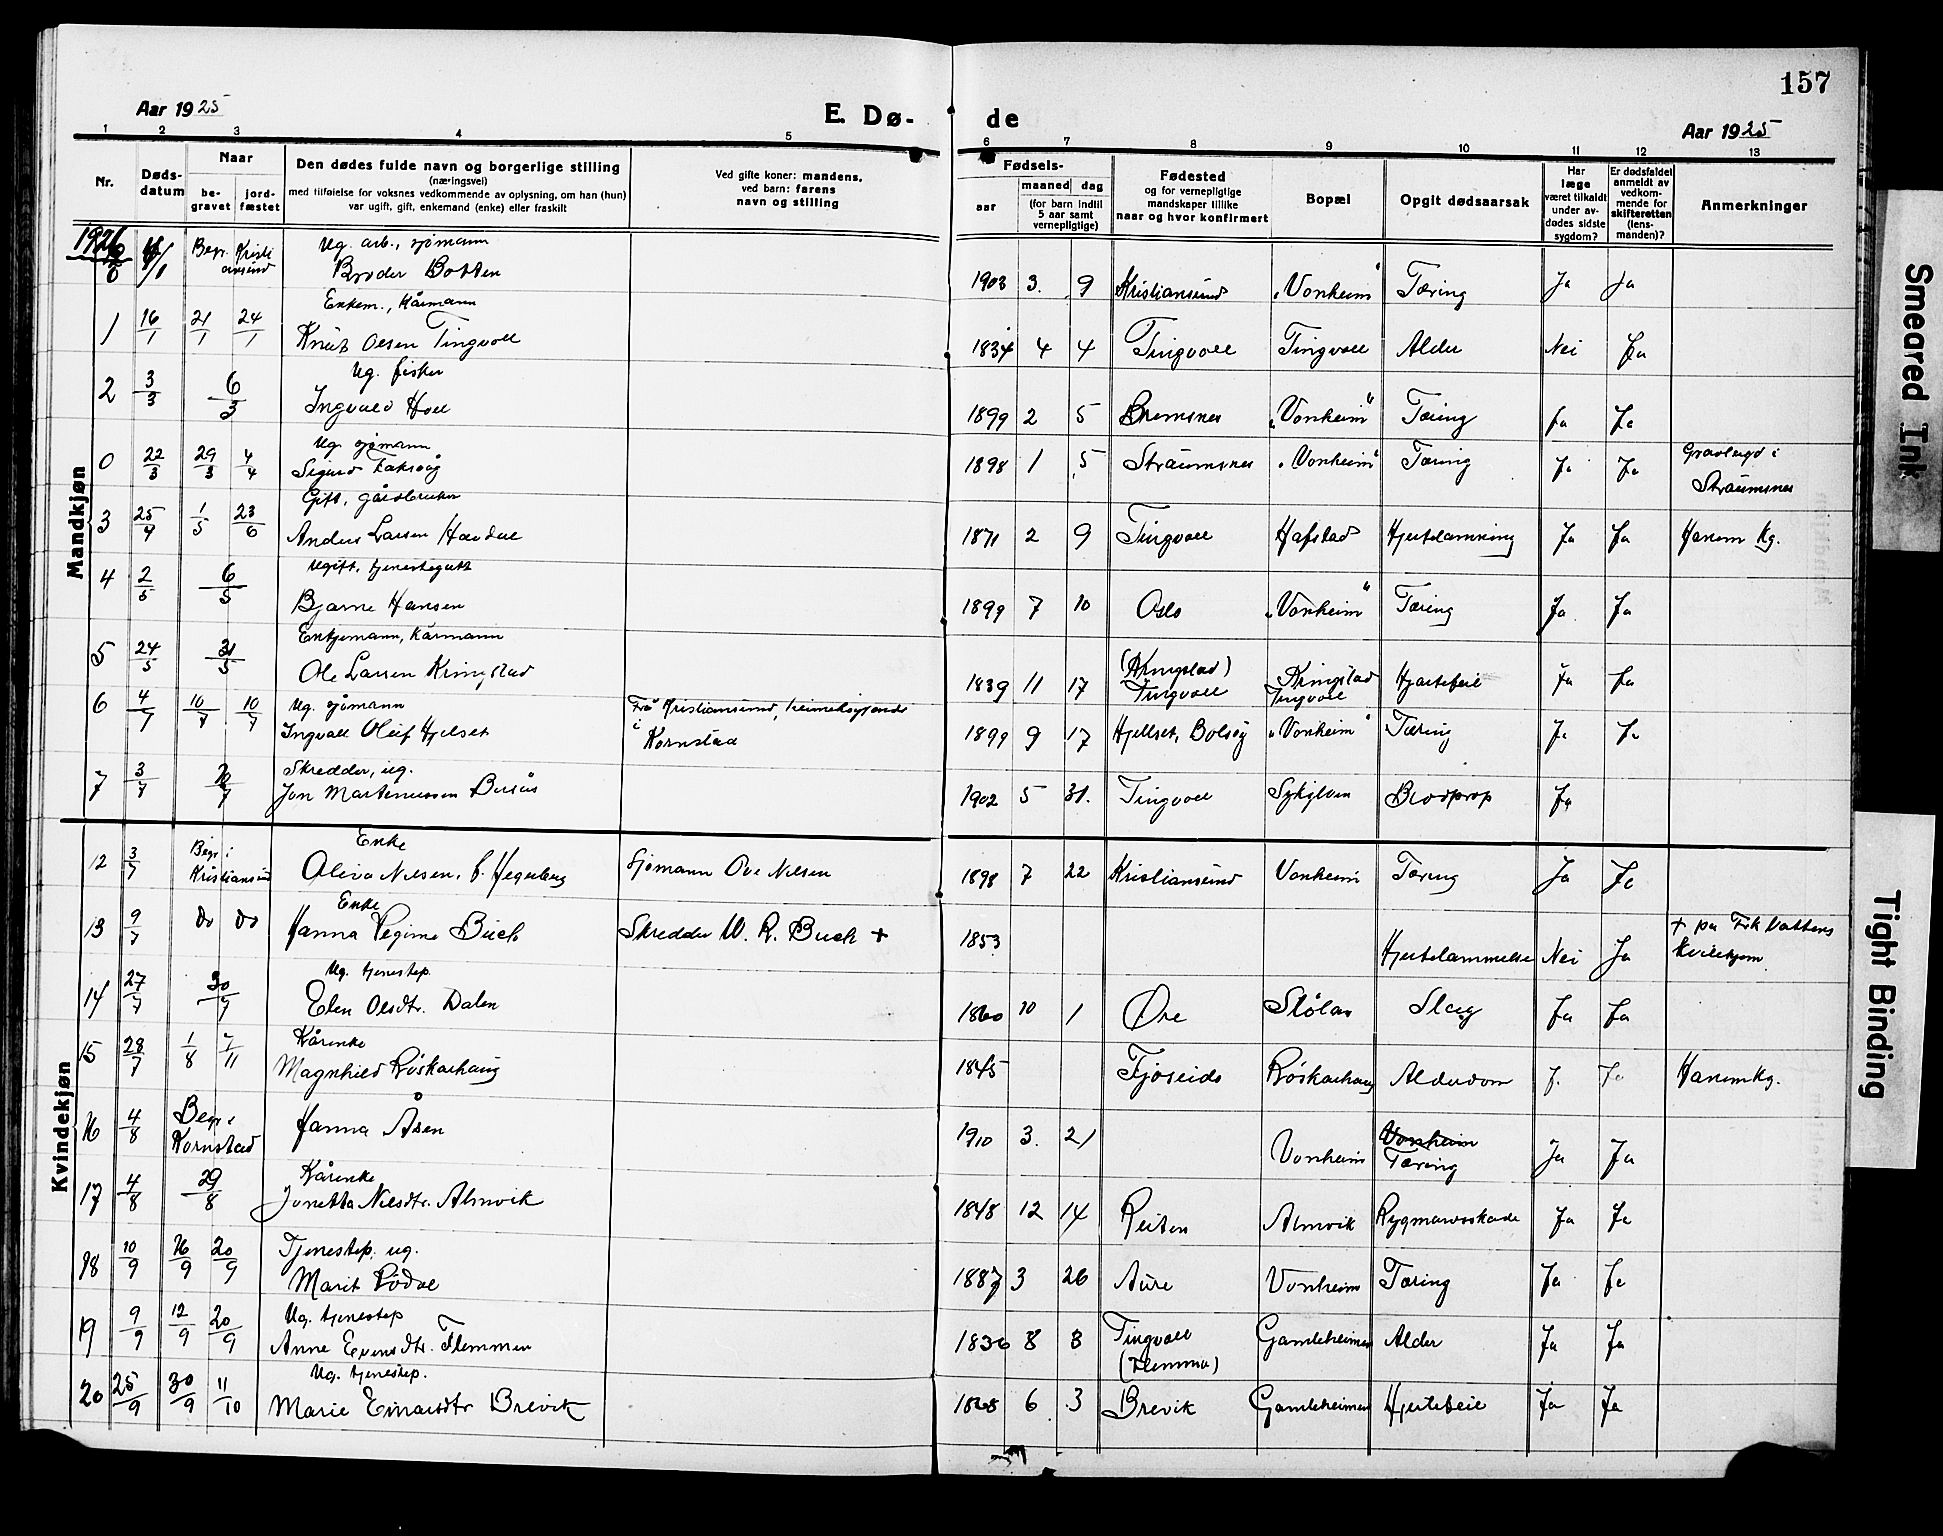 157
Aar 1925
E. Dø-
de
Aar 1925
1 2 3 4 5 6 7 8 9 10 11 12 13
Nr.
Døds-
datum
Naar
be-
gravet
jord-
fæstet
Den dødes fulde navn og borgerlige stilling
(næringsvei)
med tilføielse for voksnes vedkommende av oplysning, om han (hun)
var ugift, gift, enkemand (enke) eller fraskilt
Ved gifte koner: mandens,
ved barn: farens
navn og stilling
Fødsels-
aar
maaned dag
(for barn indtil
5 aar samt
vernepligtige)
Fødested
og for vernepligtige
mandskaper tillike
naar og hvor konfirmert
Bopæl
Opgit dødsaarsak
Har
læge
været tilkaldt
under av-
dødes sidste
sygdom?
Er dødsfaldet
anmeldt av
vedkom-
mende for
skifteretten
(lens-
manden)?
Anmerkninger
Mandkjøn
1926
0 Begr. Kristi
ansund
Ug. arb., sjømann
Broder Botten
1903 3. 9 Kristiansund "Vonheim" Tæring Ja Ja
Enkem., Kårmann
1 16/1 21/1 24/1 Knut Olsen Tingvoll 1834 4 4 Tingvoll Tingvoll Alder Nei Ja
Ug. fisker
2 3/3 6/3 Ingvald Holl 1899 2 5 Bremsnes "Vonheim" Tæring Ja Ja
Ug. sjømann
0 22/3 29/3 4/4 Sigurd Faksvåg 1898 1 5 Straumsnes "Vonheim" Tæring Ja Ja Gravlagd i
Straumsnes
Gift, gårdbruker
3 25/4 1/5 23/6 Anders Larsen Havdal 1871 2 9 Tingvoll Hafstad Hjertelamning Ja Ja Hanem Kg.
Ugift, tjenestegutt
4 2/5 6/5 Bjarne Hansen 1899 7 10 Oslo "Vonheim" Tæring Ja Ja
Enkjemann, Kårmann
5 24/5 31/5 Ole Larsen Kringstad 1839 11 17 (Kringstad)
Tingvoll Kringstad
Tingvoll Hjartefeil Ja Ja
Ug. sjømann
6 4/7 10/7 10/7 Ingvall Oluf Hjelset Frå Kristiansund, heimehøyrande
i Kornstad 1899 9 17 Hjellset, Bolsøy "Vonheim" Tæring Ja Ja
Skredder, ug.
7 3/7 10/7 Jon Martenussen Busås 1902 5 31. Tingvoll Sykylven Blodprop Ja
Kvindekjøn
Enke
12 3/7 Begr i
Kristiansund Oliva Nilsen, f. Hegerberg Sjømann Ove Nilsen 1898 7 22 Kristiansund Vonheim Tæring Ja Ja
Enke
13 9/7 do do Hanna Regine Buch Skredder W. R. Buch + 1853 Hjertelammelse Nei Ja + på Frk Vattens
Kvilehjem
Ug. tjenestep.
14 27/7 30/7 Elen Olsdtr. Dalen 1860 10 1 Øre Stølan Slag Ja Ja
Kårenke
15 28/7 1/8 7/11 Magnhild Røskarhaug 1845 Fjøseide Røskarhaug Alderdom J. Ja Hanem Kg.
16 4/8 Begr i
Kornstad Hanna Åsen 1910 3. 21 Vonheim Vonheim
Tæring Ja Ja
Kårenke
17 4/8 29/8 Jonetta Nilsdtr. Almvik 1848 12 14 Reiten Almvik Rygmarvsskade Ja Ja
Tjenestep. ug.
18 10/9 16/9 20/9 Marit Rødal 1887 3 26 Aure Vonheim Tæring Ja Ja
Ug. tjenestep
19 9/9 12/9 20/9 Anne Evensdtr. Flemmen 1836 8 3 Tingvoll
(Flemma) Gamleheimen Alder Ja Ja
Ug. tjenestep.
20 25/9 30/9 11/10 Marie Einarsdtr Brevik 1868 6 3 Brevik Gamleheimen Hjertefeil Ja Ja
Smeared Ink
Tight Binding